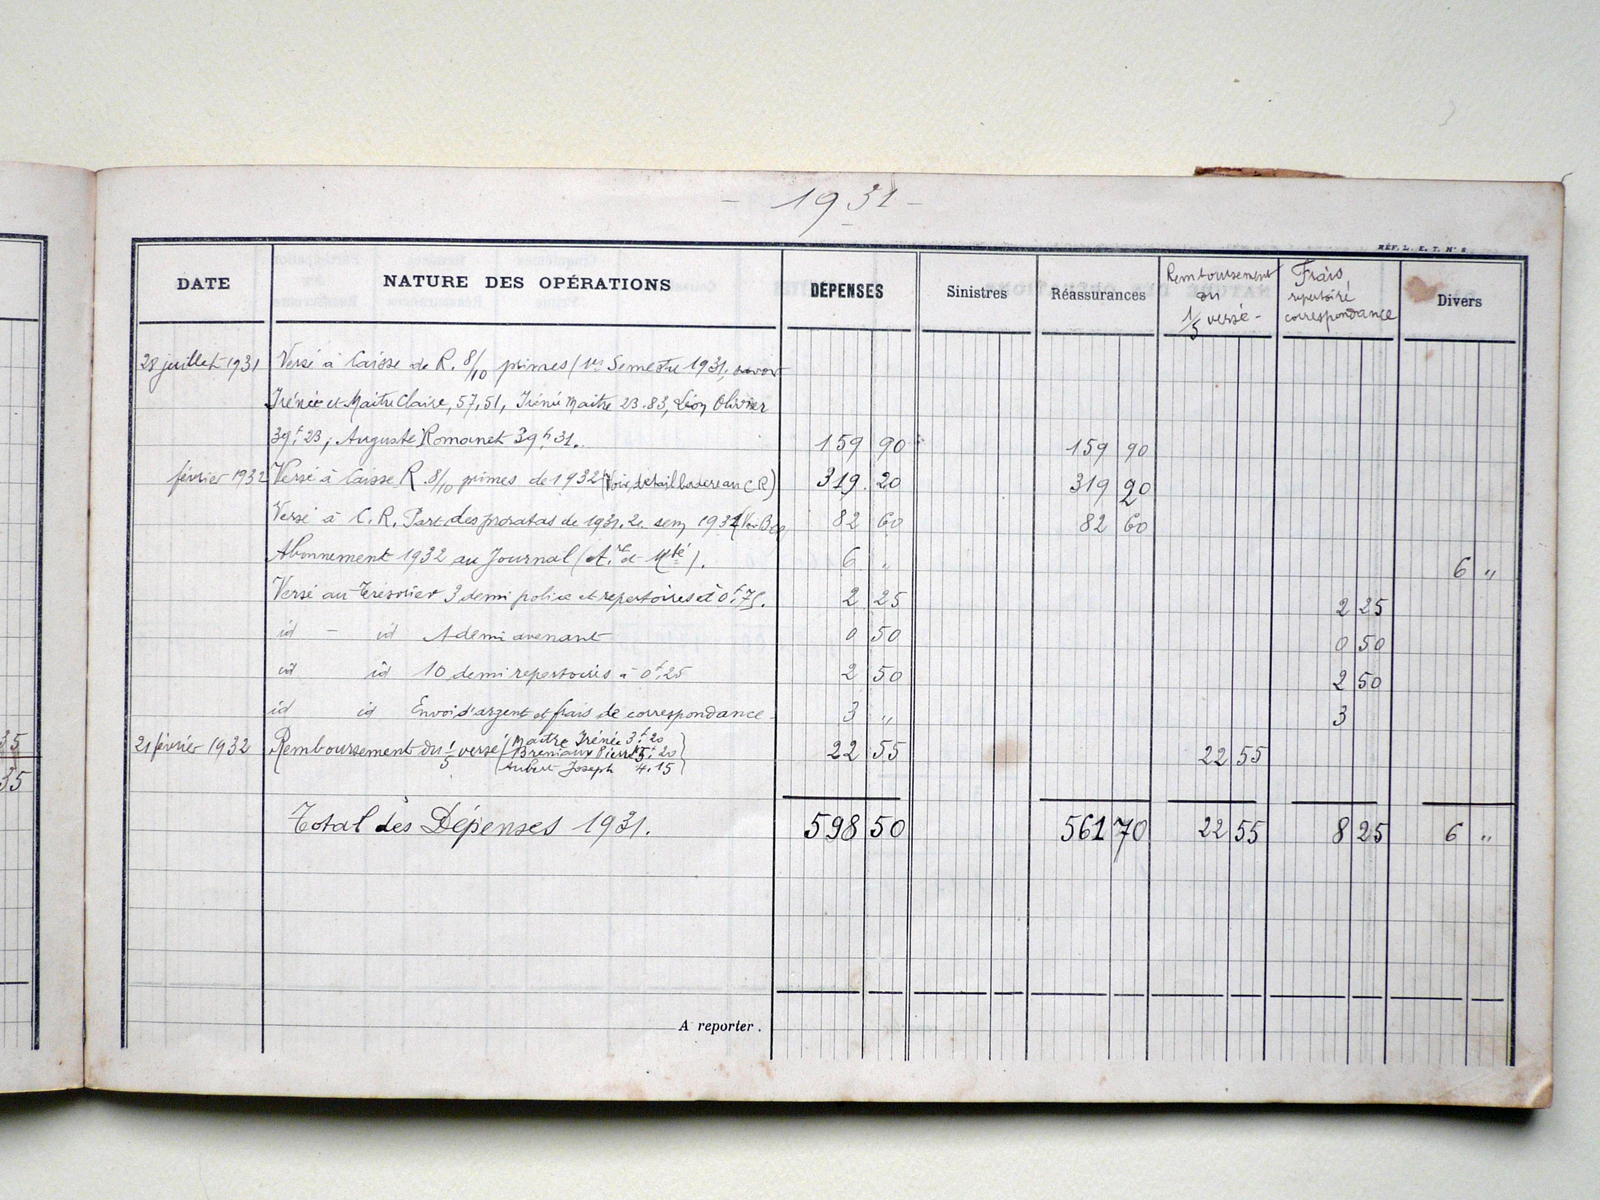 - 1931 -
RÉF. L. E. T. Nº 8
DATE NATURE DES OPÉRATIONS DÉPENSES Sinistres Réassurances Remboursement du 1/5 versé - Frais repertoire correspondance Divers
28 juillet 1931 Versé à Caisse de R. 8/10 primes (1er Semestre 1931, savoir
Irénée et Maitre Claire, 57,51, Iréné Maitre 23.83, Léon Olivier
39f 23, Auguste Romanet 39f 31. 159 90 159 90
février 1932 Versé à Caisse R. 8/10 primes de 1932 (Voir détail bordereau C R) 319. 20 319 20
Versé à C. R. Part des proratas de 1931. 2e sem 1931 (Voir 82 60 82 60
Abonnement 1932 au Journal ( 6 " 6 "
Versé au Trésorier 3 demi police et repertoires à 0f.75. 2 25 2 25
id - id 1 demi avenant 0 50 0 50
id id 10 demi repertoires à 0f.25 2 50 2 50
id id Envoi d'argent et frais de correspondance 3 " 3
21 février 1932 Remboursement du 1/5 versé (Maitre Irénée 3f 20 22 55 22 55
Pierre 5f 20
Aubert Joseph 4.15)
Total des Dépenses 1931. 598 50 561 70 22 55 8 25 6 "
A reporter.
35
35